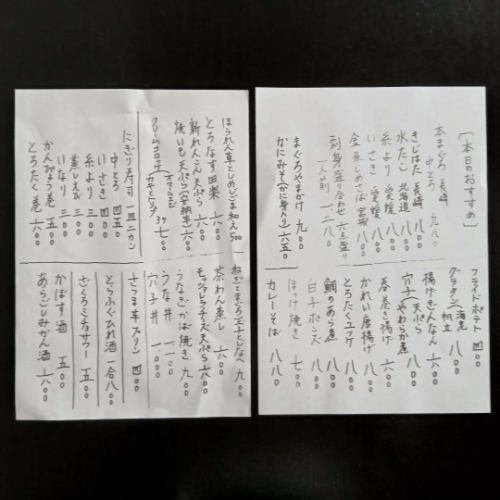 [本日のおすすめ]
本まぐろ 長崎
中とろ 九八〇
きじはた 長崎 八〇〇
水たこ 北海道 八〇〇
糸より 愛媛 八〇〇
いさき 愛媛 八〇〇
金華しめさば 宮城 八〇〇
刺身盛り合わせ 六点盛り
一人前 一、三八〇
まぐろやまかけ 九〇〇
かにみそ(かに身入り) 六五〇
フライドポテト 四〇〇
グラタン 海老 帆立 八〇〇
揚げぎんなん 六〇〇
穴子 天ぷら 八〇〇
やわらか煮 八〇〇
春巻き揚げ 六〇〇
かれい唐揚げ 八〇〇
とろたくユッケ 八〇〇
鯛のあら煮 八〇〇
白子ポンズ 八〇〇
ほっけ焼き 七〇〇
カレーそば 八八〇
ほうれん草としめじごま和え 五〇〇
とろなす田楽 六〇〇
新れんこん天ぷら 六〇〇
焼いも天ぷら(安納芋) 六〇〇
クリームコロッケ
にぎり寿司 一皿二カン
中とろ 四五〇
いさき 四〇〇
糸より 三〇〇
蒸しえび 三〇〇
いなり 三〇〇
かんぴょう巻 五〇〇
とろたく巻 六〇〇
ねぎとまぐろ 九〇〇
茶わん蒸し 六〇〇
モッツァレラチーズ天ぷら 六〇〇
うなぎかば焼き 九〇〇
うな丼 一一〇〇
穴子丼 一〇〇〇
さつま芋プリン 四〇〇
とらふぐひれ酒 一合 八〇〇
ざくろミチョサワー 五〇〇
かぼす酒 五〇〇
あらごしみかん酒 六〇〇